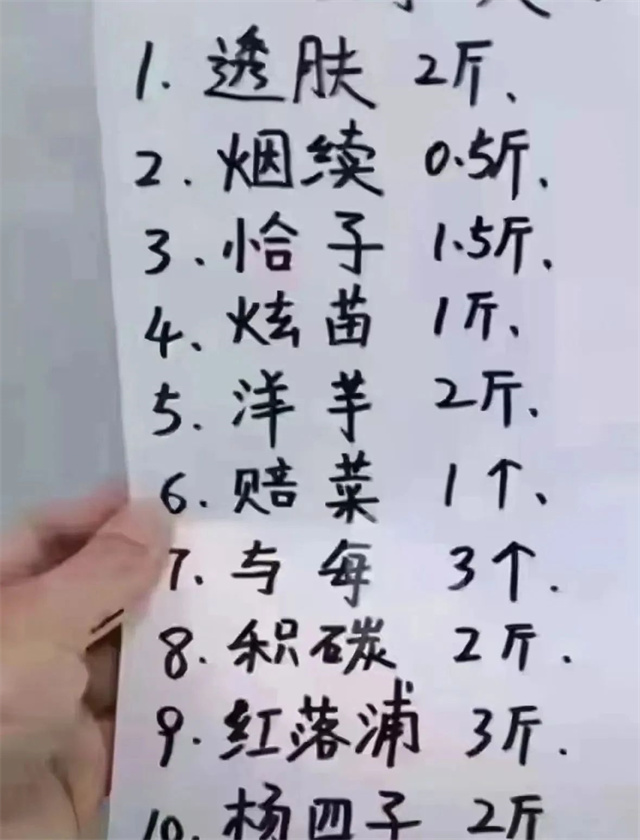 1. 透肤 2斤、
2. 烟续 0.5斤.
3. 恰子 1.5斤.
4、炫苗 1斤、
5. 洋芋 2斤.
6. 赔菜 1个、
7、与每 3个.
8. 积碳 2斤.
9. 红落浦 3斤.
10. 杨四子 2斤